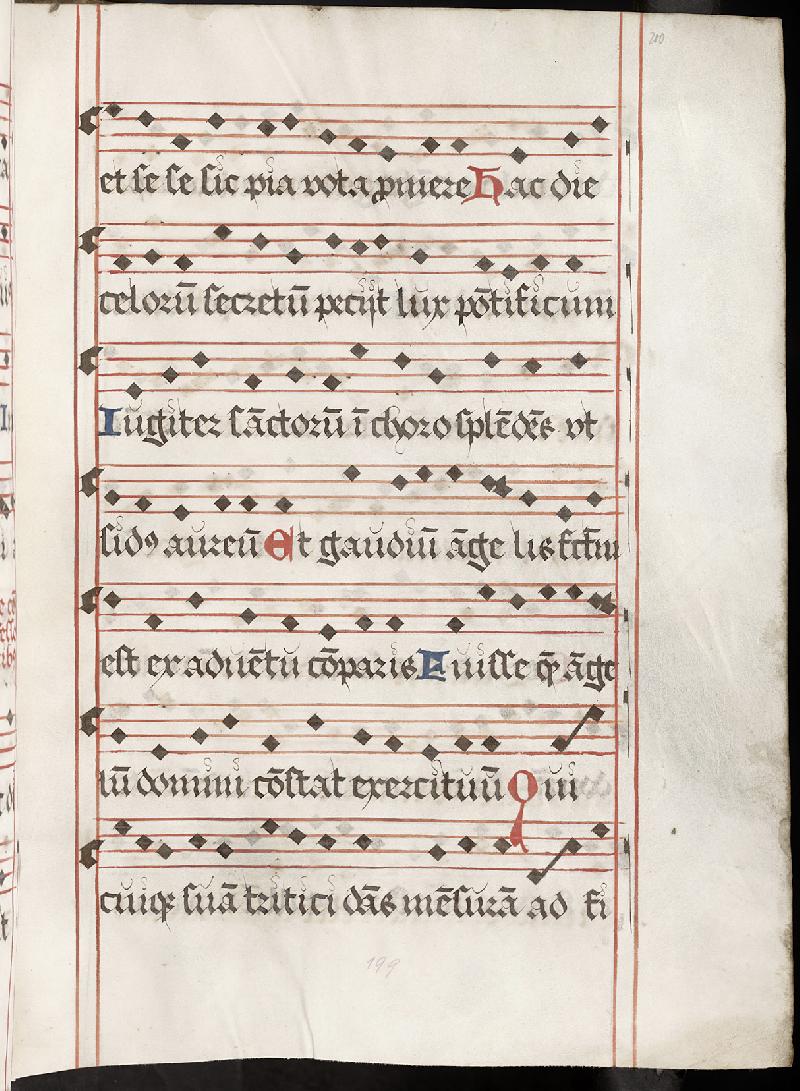 200
et se se sic pia vota p̄miere Hac die
celorū secretū petiit lux pōtificum
Iugiter sāctorū ī choro splēdēs vt
sidꝯ aureū Et gaudiū āge lis fctm
est ex aduētu cōparis Euisse q̄ āge
lū domini cōstat exercituū Qui
cuiqꝫ suā tritici dās mēsurā ad fi
199